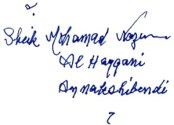 Sheik Mohamad Nazim
Al Haqqani
Annakshibendi